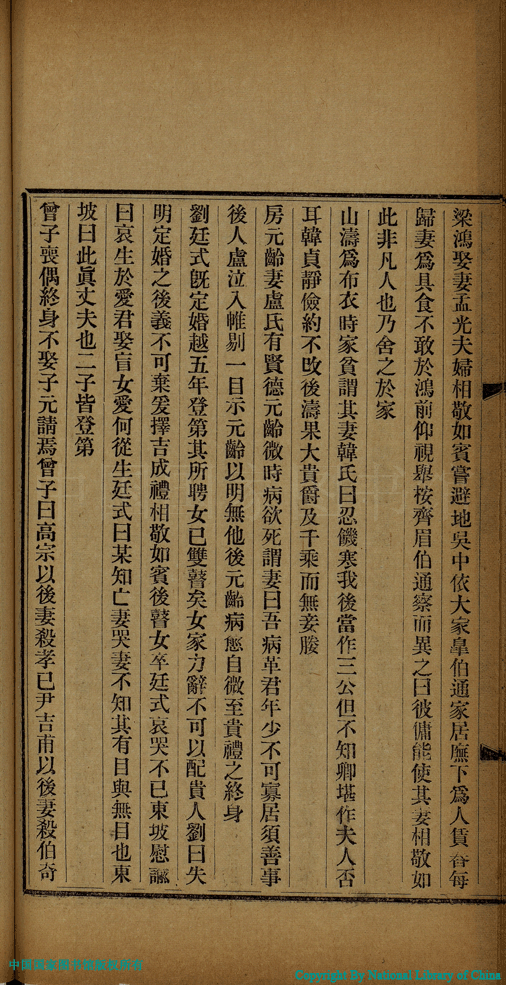 梁鴻娶妻孟光夫婦相敬如賓嘗避地吳中依大家皐伯通家居廡下爲人賃舂每
歸妻爲具食不敢於鴻前仰視舉按齊眉伯通察而異之曰彼傭能使其妻相敬如
此非凡人也乃舍之於家
山濤爲布衣時家貧謂其妻韓氏曰忍饑寒我後當作三公但不知卿堪作夫人否
耳韓貞靜儉約不改後濤果大貴爵及千乘而無妾媵
房元齡妻盧氏有賢德元齡微時病欲死謂妻曰吾病革君年少不可寡居須善事
後人盧泣入帷剔一目示元齡以明無他後元齡病愈自微至貴禮之終身
劉廷式旣定婚越五年登第其所聘女已雙瞽矣女家力辭不可以配貴人劉曰失
明定婚之後義不可棄爰擇吉成禮相敬如賓後瞽女卒廷式哀哭不已東坡慰諭
曰哀生於愛君娶盲女愛何從生廷式曰某知亡妻哭妻不知其有目與無目也東
坡曰此眞丈夫也二子皆登第
曾子喪偶終身不娶子元請焉曾子曰高宗以後妻殺孝已尹吉甫以後妻殺伯奇
中国国家图书馆版权所有
Copyright By National Library of China